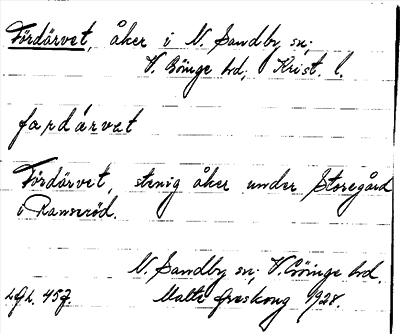 Fördärvet, åker i N. Sandby sn;
V. Göinge hd, Krist. l.
fardárvat
Fördärvet, stenig åker under Storegård
i Ranseröd.
N. Sandby sn; V. Göinge hd.
Malte 1928.